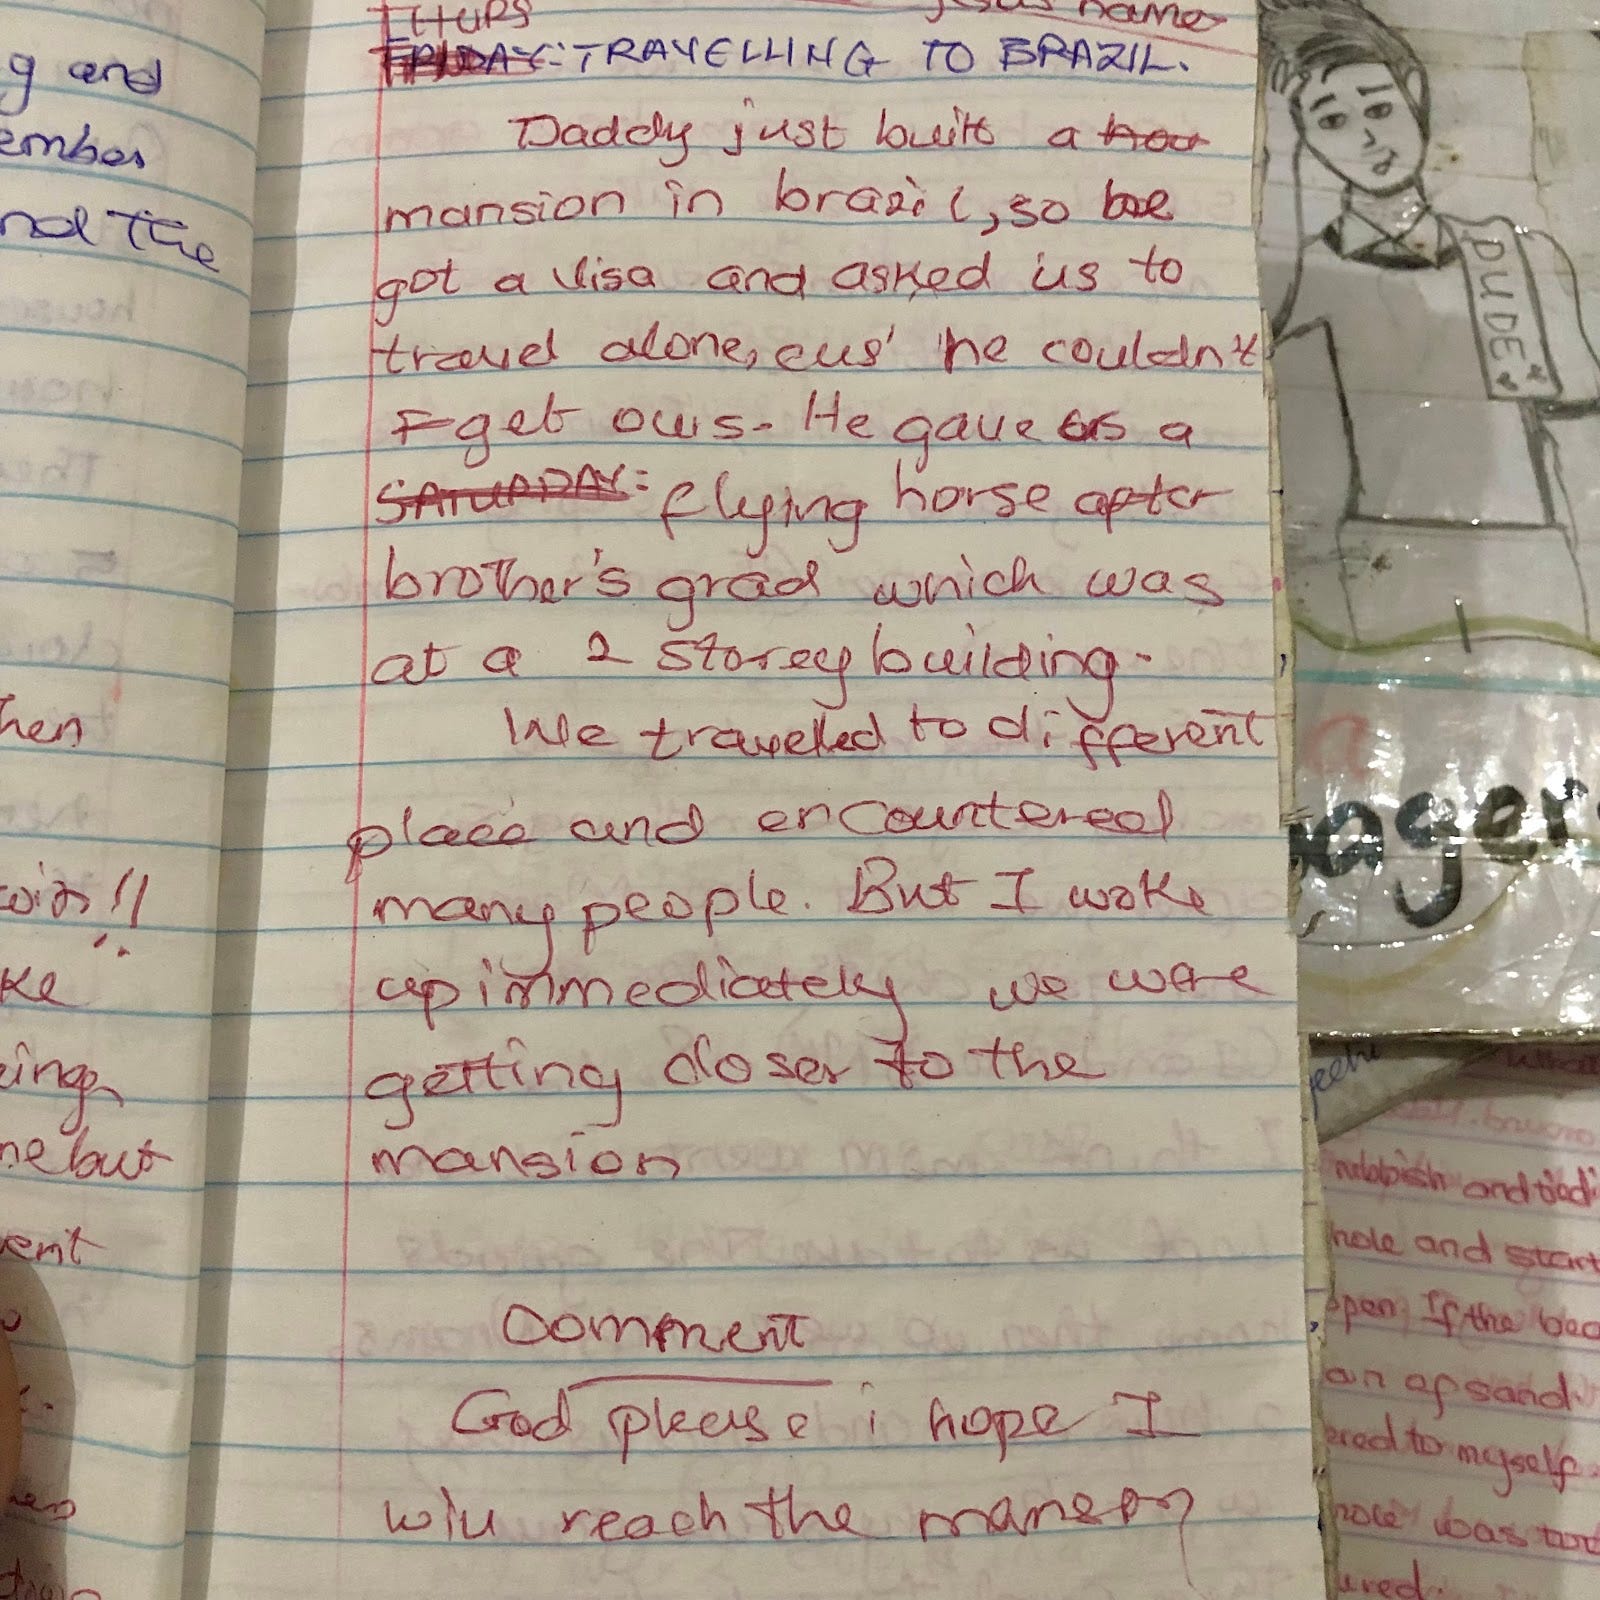 g and
ember
nd The
hen
!!
ke
ne but
ent
THURS
Jesus name
FRIDAY:-TRAVELLING TO BRAZIL.
Daddy just built a hou
mansion in brazil, so he
got a visa and asked us to
travel alone, cus' he couldn't
F get ours. He gave us a
SATURDAY: flying horse after
brother's grad which was
at a 2 storey building.
We travelled to different
place and encountered
many people. But I woke
up immediately we were
getting closer to the
mansion
Comment
God please i hope I
will reach the mansion
DUDE
ager
rubbish and
hole and start
open If the
an of sand.
ered to myself.
hole was too
ured.